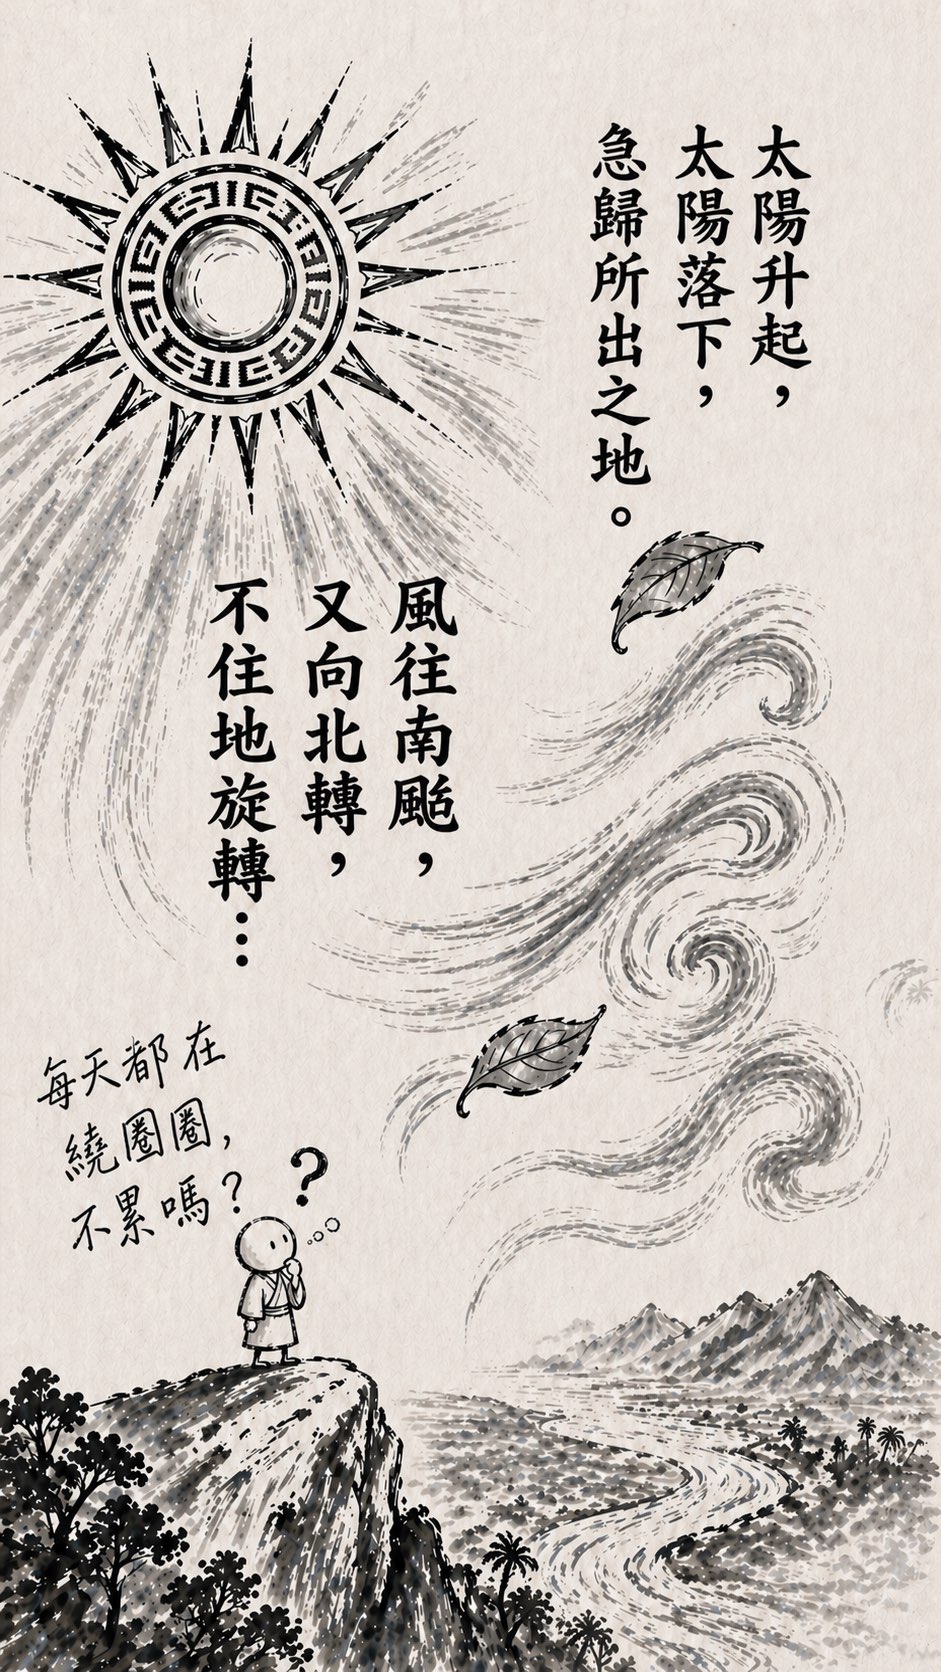 太陽升起，
太陽落下，
急歸所出之地。
風往南颱，
又向北轉，
不住地旋轉⋯
每天都在
繞圈圈，
不累嗎？
？